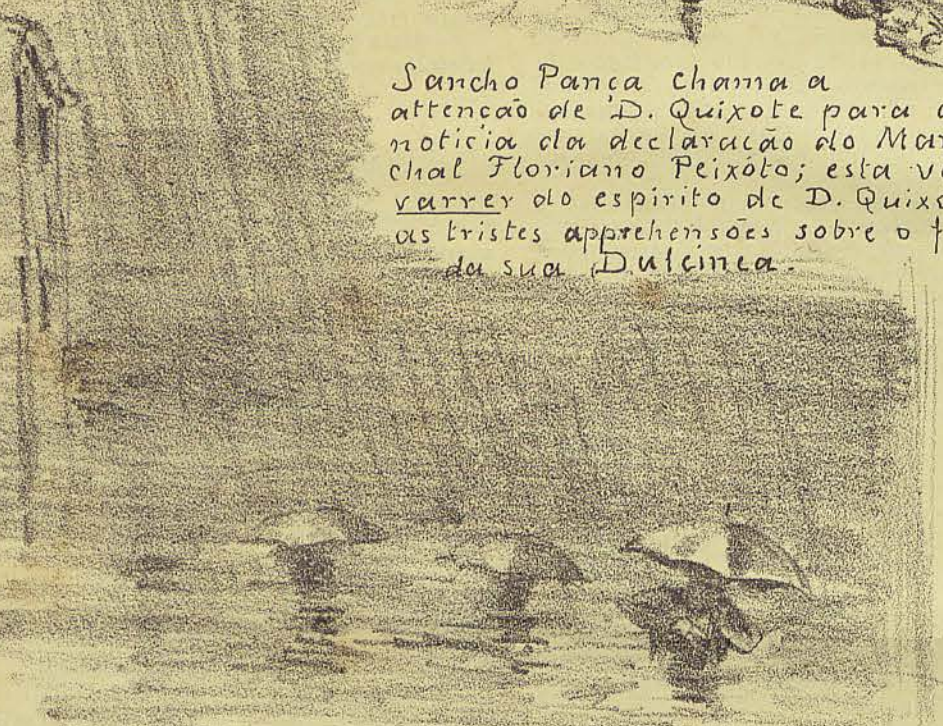 Sancho Pança chama a
attenção de D. Quixote para
noticia da declaração do Mar
chal Floriano Peixóto; esta
varrer do espirito de D. Quixo
as tristes apprehensões sobre o
da sua Dulcinea.